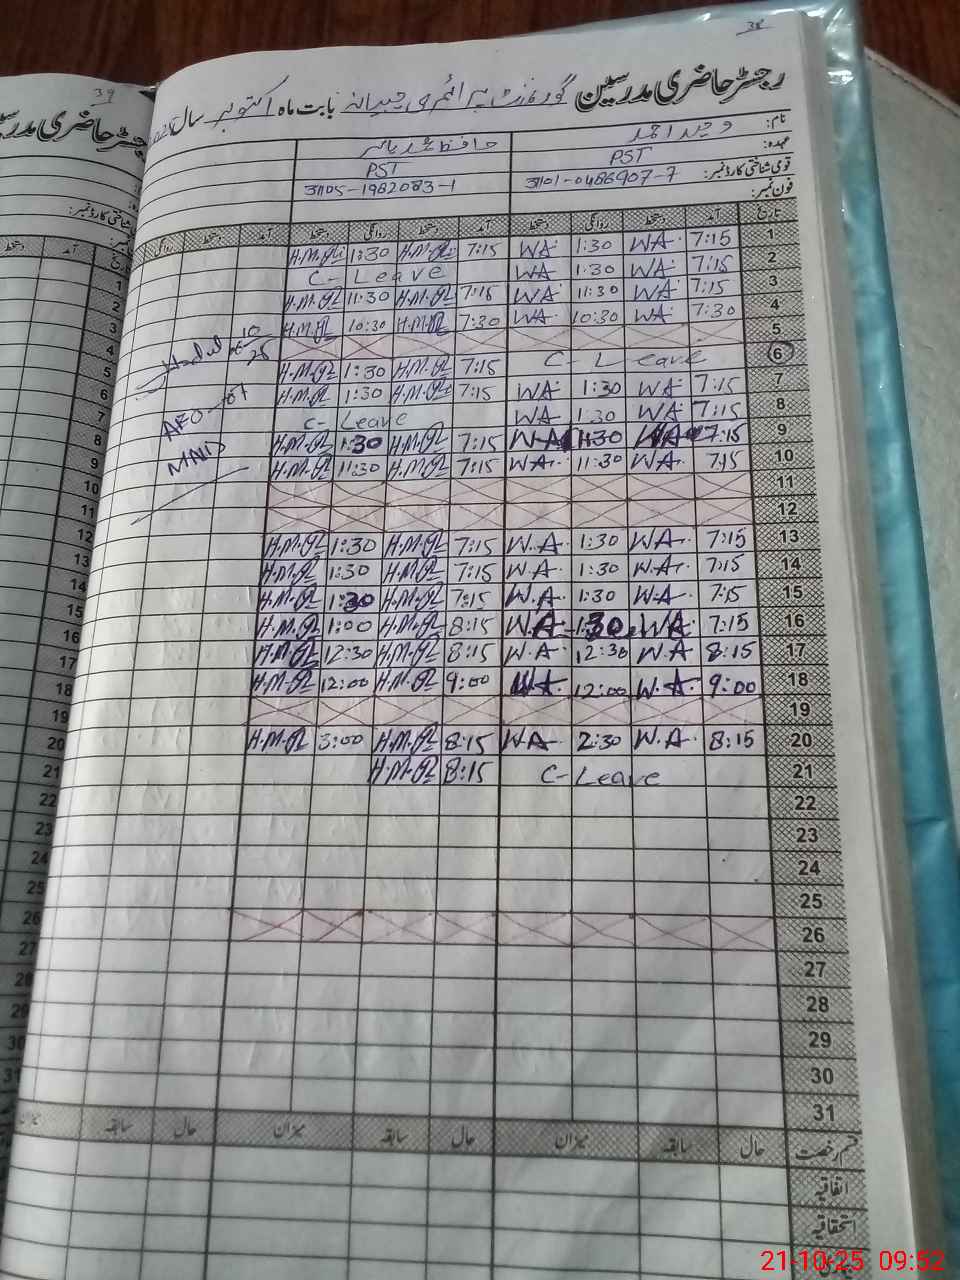 38
رجسٹر حاضری مدرسین گورنمنٹ پرائمری بابت ماہ اکتوبر سال
نام: وحید احمد حافظ محمد یاسر
عہدہ: PST PST
قومی شناختی کارڈ نمبر: 31101-0486907-7 31105-1982083-1
فون نمبر:
تاریخ آمد دستخط روانگی دستخط آمد دستخط روانگی دستخط آمد دستخط روانگی
1 7:15 WA 1:30 WA 7:15 H.M. 1:30 H.M.
2 7:15 WA 1:30 WA C-Leave
3 7:15 WA 11:30 WA 7:15 H.M. 11:30 H.M.
4 7:30 WA 10:30 WA 7:30 H.M. 10:30 H.M.
5
6 C-Leave 7:15 H.M. 1:30 H.M.
7 7:15 WA 1:30 WA 7:15 H.M. 1:30 H.M.
8 7:15 WA 1:30 WA C-Leave
9 7:15 WA 1:30 W.A 7:15 H.M. 1:30 H.M.
10 7:15 WA 11:30 WA 7:15 H.M. 11:30 H.M.
11
12
13 7:15 WA 1:30 W.A 7:15 H.M. 1:30 H.M.
14 7:15 W.A 1:30 W.A 7:15 H.M. 1:30 H.M.
15 7:15 W.A 1:30 W.A 7:15 H.M. 1:30 H.M.
16 7:15 WA 1:30 W.A 8:15 H.M. 1:00 H.M.
17 8:15 W.A 12:30 W.A 8:15 H.M. 12:30 H.M.
18 9:00 W.A 12:00 WA 9:00 H.M. 12:00 H.M.
19
20 8:15 W.A 2:30 WA 8:15 H.M. 3:00 H.M.
21 C-Leave 8:15 H.M.
22
23
24
25
26
27
28
29
30
31
قسم رخصت حال سابقہ میزان حال سابقہ میزان حال سابقہ
اتفاقیہ
استحقاقیہ
10
25
AEO-07
39
رجسٹر حاضری
شناختی کارڈ نمبر:
تاریخ آمد دستخط
1
2
3
4
5
6
7
8
9
10
11
12
13
14
15
16
17
18
19
20
21
22
23
24
25
26
27
28
29
30
31
میزان
21-10-25 09:52